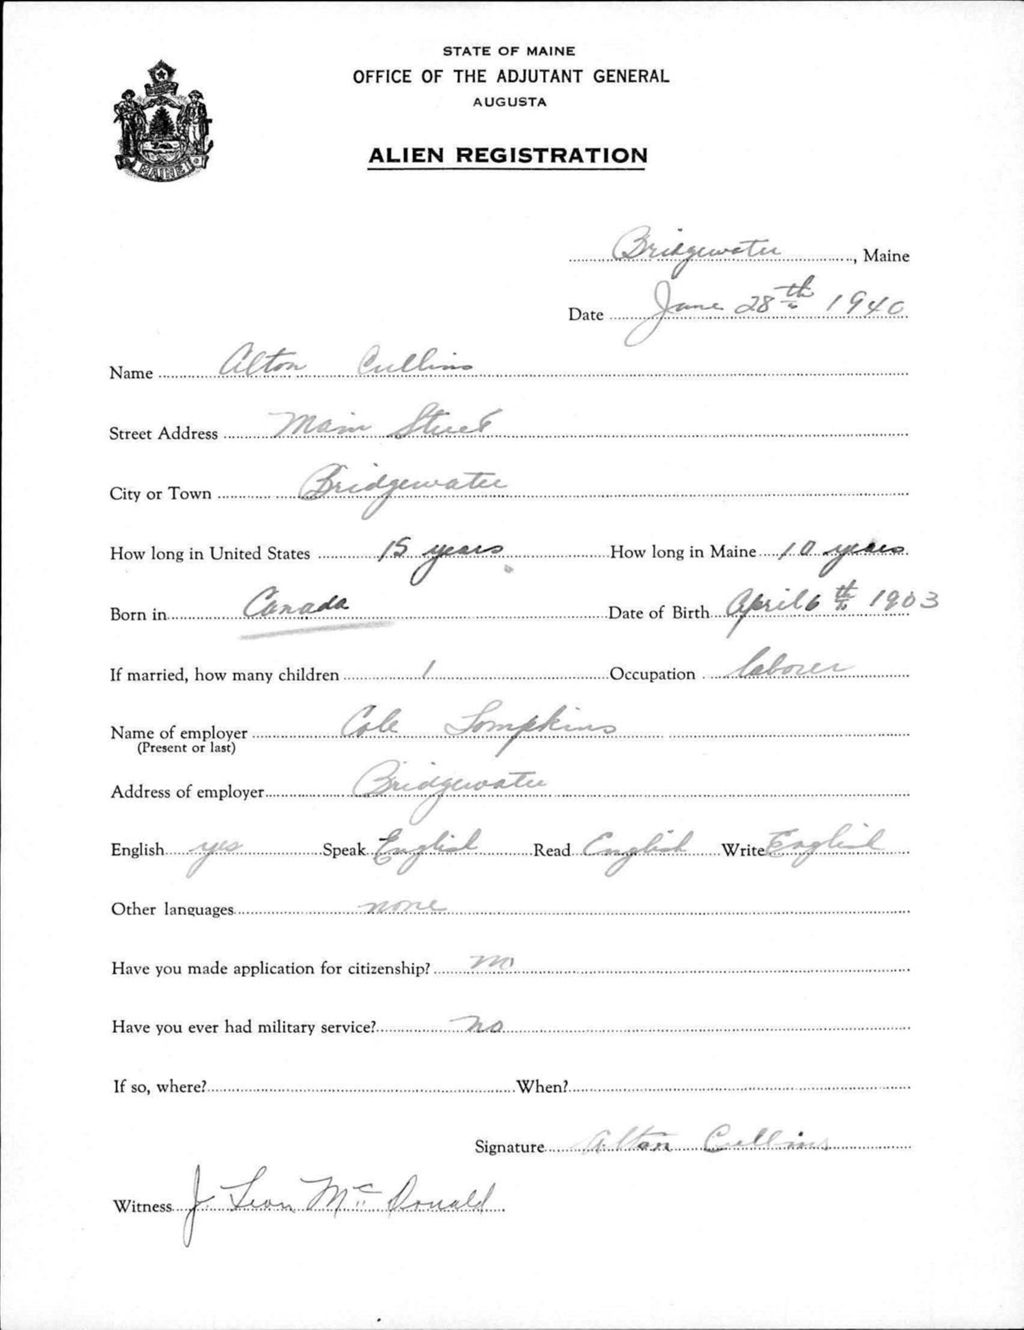 STATE OF MAINE
OFFICE OF THE ADJUTANT GENERAL
AUGUSTA
ALIEN REGISTRATION
MAINE
Bridgewater, Maine
Date June 28th 1940
Name Alton Cullins
Street Address Main Street
City or Town Bridgewater
How long in United States 15 years How long in Maine 10 years
Born in Canada Date of Birth April 6th 1903
If married, how many children 1 Occupation laborer
Name of employer Cole Tompkins
(Present or last)
Address of employer Bridgewater
English yes Speak English Read English Write English
Other languages none
Have you made application for citizenship? no
Have you ever had military service? no
If so, where? When?
Signature Alton Cullins
Witness J. Leon McDonald